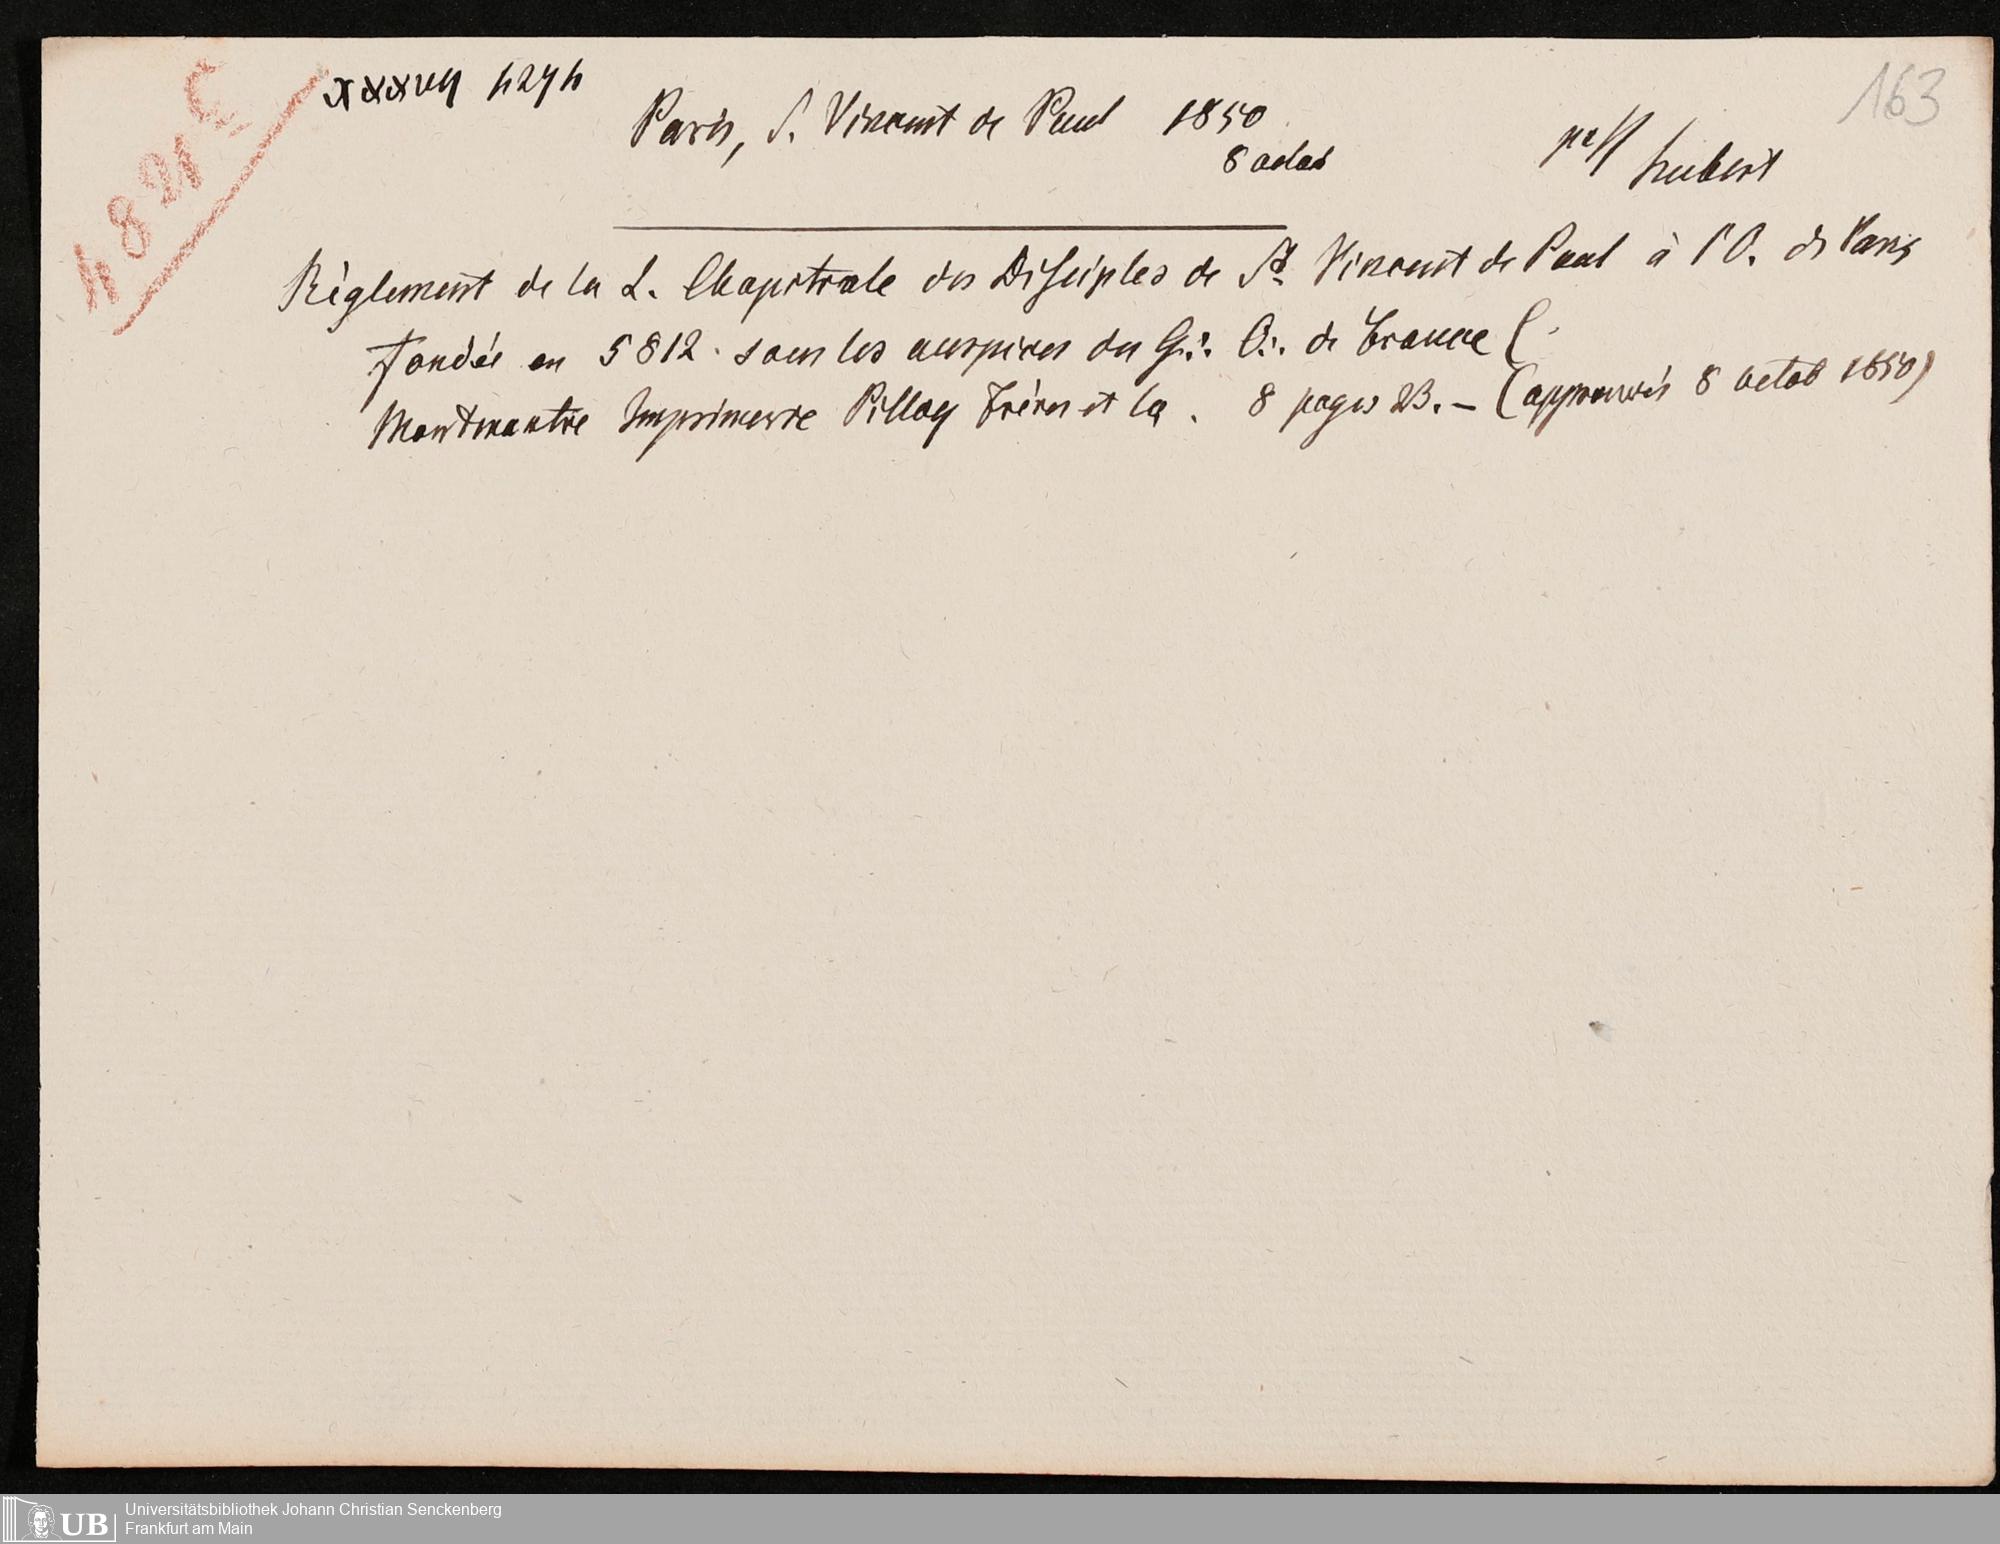 4821 C
163
xxxvii 4274
Paris, S. Vincent de Paul 1850
8 octob
Hubert
Règlement de la L. Chapitrale des Disciples de St. Vincent de Paul à l'O. de Paris
fondée en 5812 sous les auspices du G∴ O∴ de France (
Montmartre Imprimerie Pilloy frères et Cie. 8 pages 23. – (approuvés 8 octob 1850)
UB
Universitätsbibliothek Johann Christian Senckenberg
Frankfurt am Main